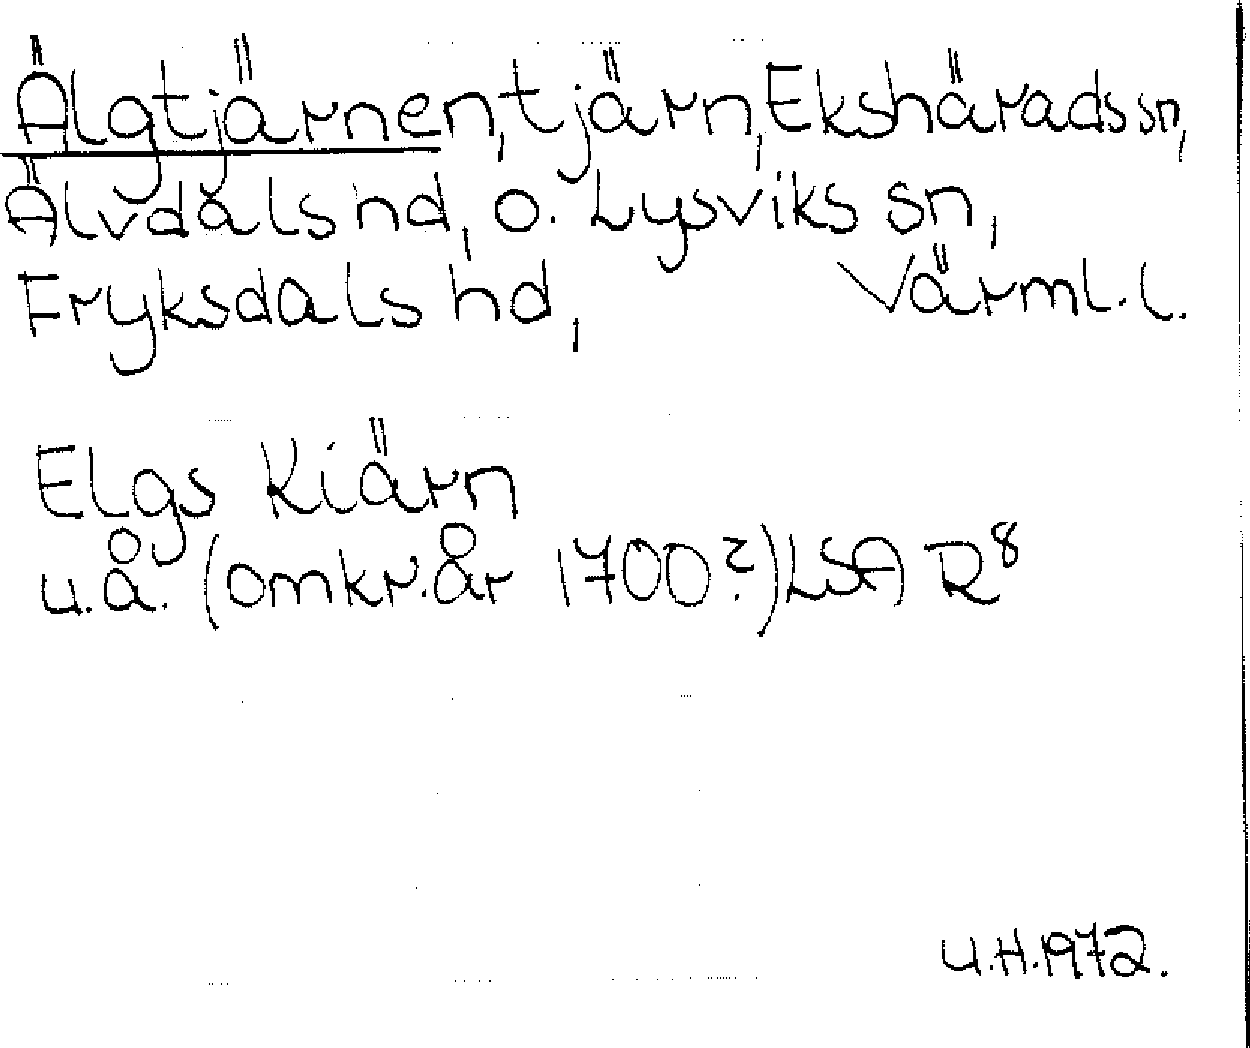 Älgtjärnen, tjärn, Ekshärads sn,
Älvdals hd, o. Lysviks sn,
Fryksdals hd, Värml. l.
Elgs Kiärn
u.å. (omkr. år 1700?) LSA R8
U.H. 1972.